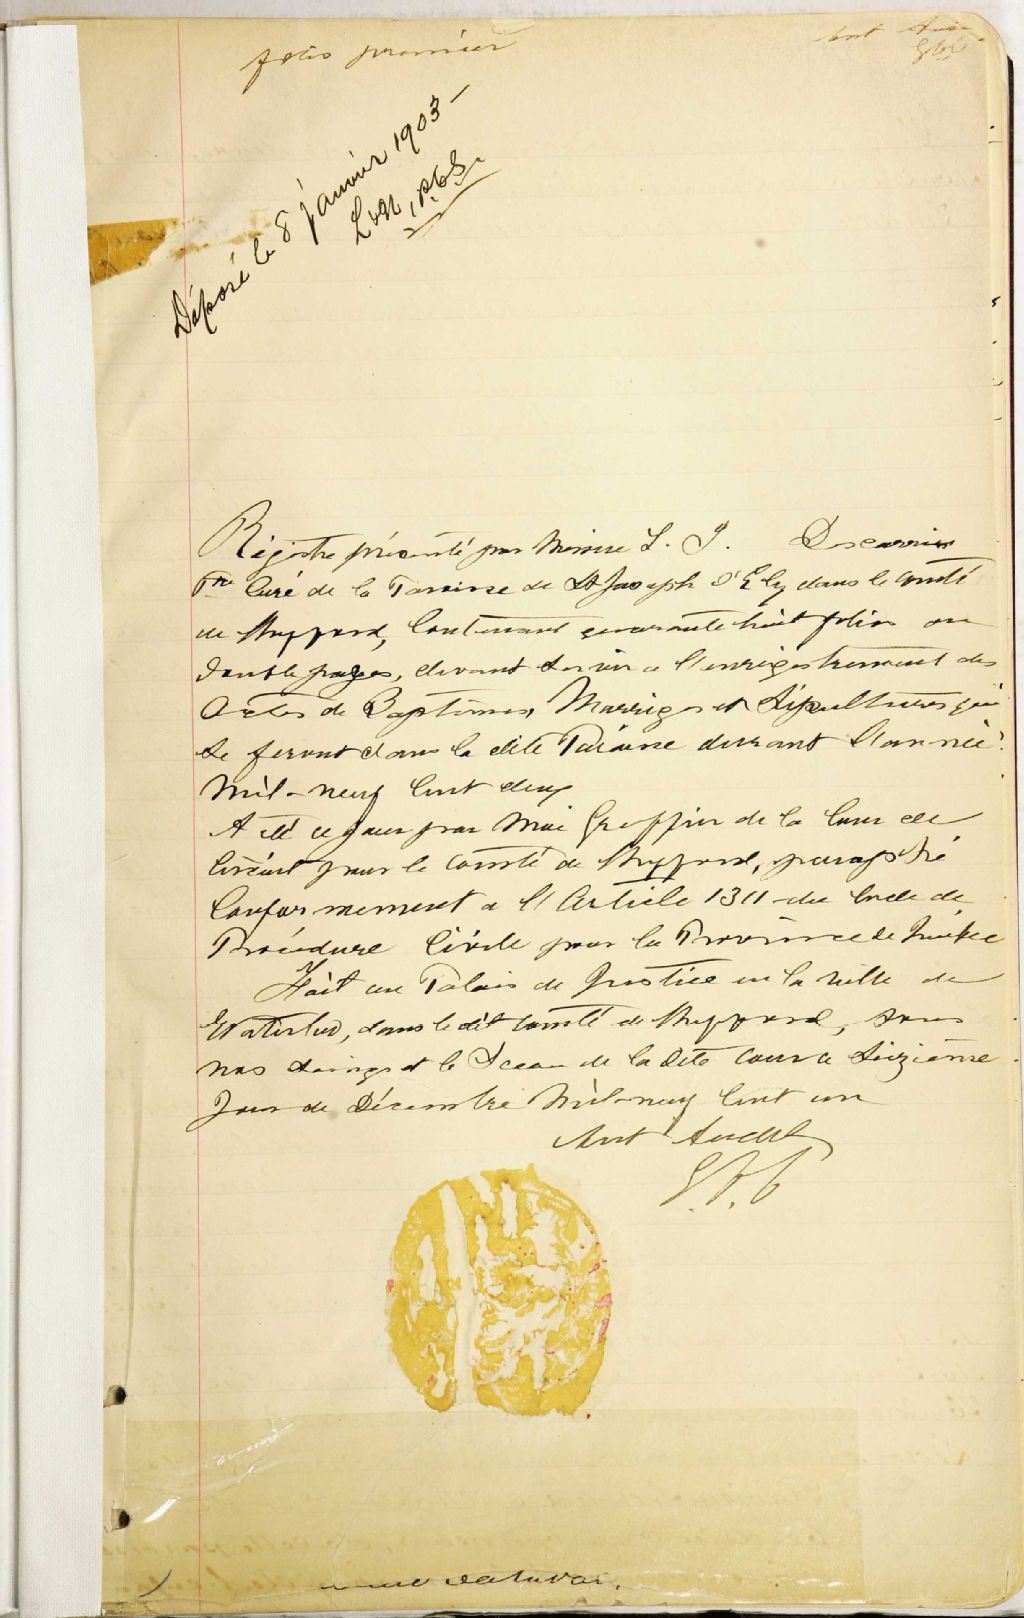 folio premier
Déposé le 8 janvier 1903 –
Régistre présenté par Messire L. J. Descarries
Ptre Curé de la Paroisse de St Joseph d'Ely dans le Comté
de Shefford, Contenant quarante huit folios ou
double pages, devant servir a l'enrigestrement des
Actes de Baptêmes, Marriages et Sépultures qui
se feront dans la dite Paroisse durrant l'année
Mil-neuf Cent deux
A été ce jour par Moi Greffier de la Cour de
Circuit pour le Comté de Shefford, paraphé
Conformement a l'Article 1311 du Code de
Procédure Civile pour la Province de Québec
Fait au Palais de Justice en la ville de
Waterloo, dans le dit Comté de Shefford, sous
nos seings et le Sceau de la dite Cour ce seizième
Jour de Décembre Mil-neuf Cent un